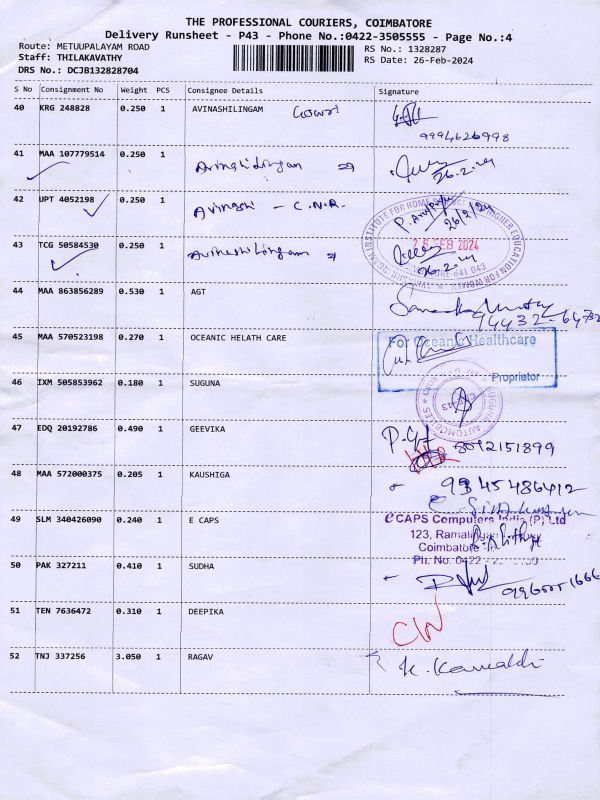 THE PROFESSIONAL COURIERS, COIMBATORE
Delivery Runsheet - P43 - Phone No.:0422-3505555 - Page No.:4
Route: METUUPALAYAM ROAD
RS No.: 1328287
Staff: THILAKAVATHY
RS Date: 26-Feb-2024
DRS No.: DCJB132828704
S No Consignment No Weight PCS Consignee Details Signature
40 KRG 248828 0.250 1 AVINASHILINGAM
9994626998
41 MAA 107779514 0.250 1 Avinashilingam ⇒
26.2.24
42 UPT 4052198 0.250 1 Avinashi - C.N.R.
26/2/24
43 TCG 50584530 0.250 1 Avinashilingam ⇒
26 FEB 2024
26.2.24
44 MAA 863856289 0.530 1 AGT
94432-64732
45 MAA 570523198 0.270 1 OCEANIC HELATH CARE
For Oceanic Healthcare
Proprietor
46 IXM 505853962 0.180 1 SUGUNA
47 EDQ 20192786 0.490 1 GEEVIKA
8092151899
48 MAA 572000375 0.205 1 KAUSHIGA
9345486412
49 SLM 340426090 0.240 1 E CAPS
e CAPS Computers India (P) Ltd
123,
Coimbatore
Ph. No. 0422
50 PAK 327211 0.410 1 SUDHA
51 TEN 7636472 0.310 1 DEEPIKA
52 TNJ 337256 3.050 1 RAGAV
K.